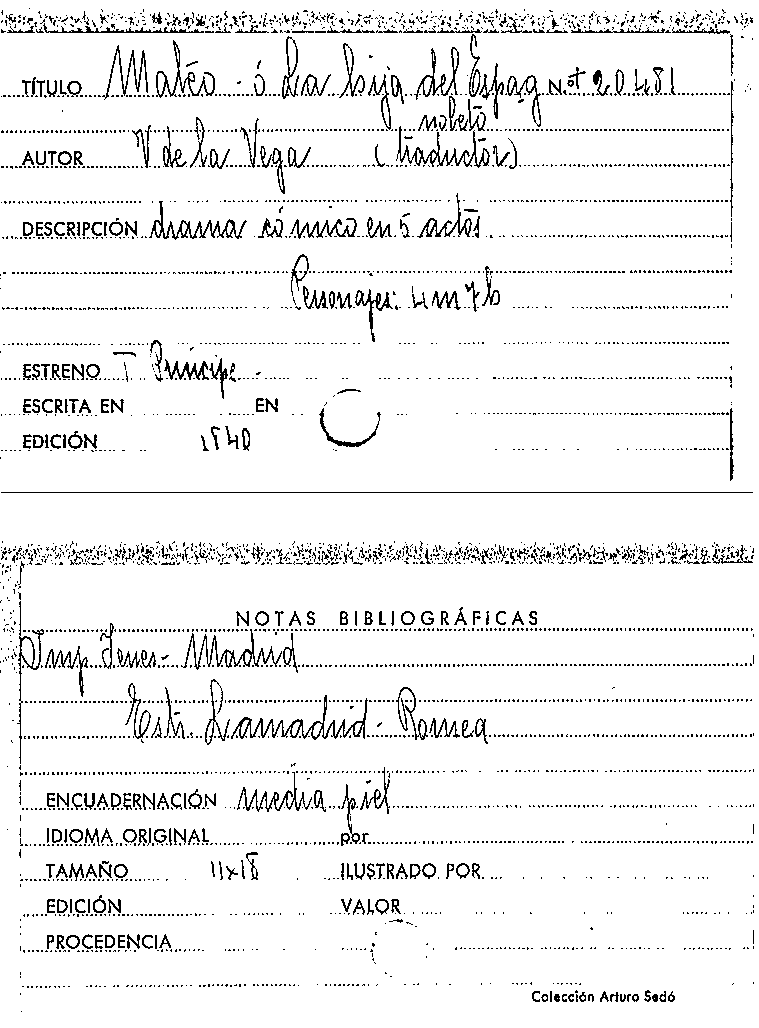 TÍTULO Mateo - ó La hija del Españ N.º 20481
noleto
AUTOR V de la Vega (traductor)
DESCRIPCIÓN drama cómico en 5 actos.
Personajes: 4 m 7 h
ESTRENO T Principe -
ESCRITA EN EN
EDICIÓN 1840
NOTAS BIBLIOGRÁFICAS
Imp Yenes - Madrid
Estr. Lamadrid - Romea
ENCUADERNACIÓN media piel
IDIOMA ORIGINAL por
TAMAÑO 11x18 ILUSTRADO POR
EDICIÓN VALOR
PROCEDENCIA
Colección Arturo Sedó